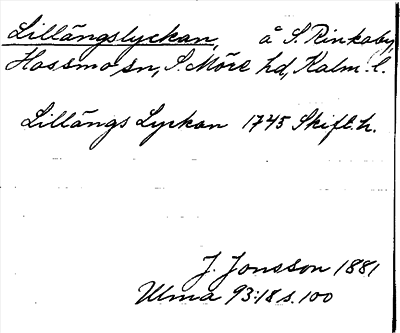 Lillängslyckan, å S. Rinkaby,
Hossmo sn, S. Möre hd, Kalm. l.
Lillängs Lyckan 1745 Skift. h.
J. Jonsson 1881
Ulma 93:18 s. 100